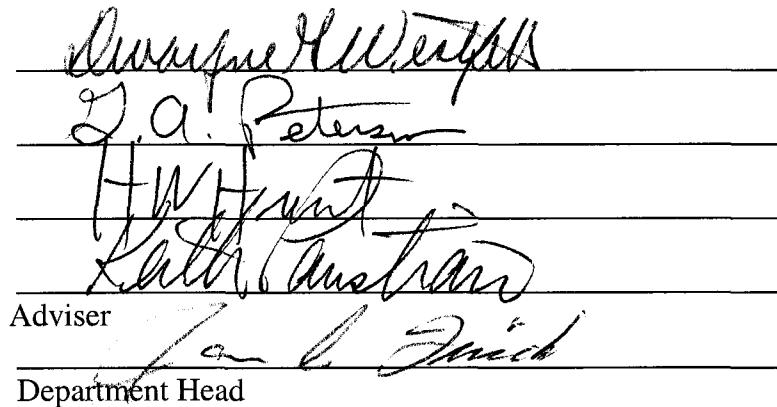 Dwayne G Westfall
G. A. Peterson
H W Hunt
Keith Paustian
Adviser
Department Head